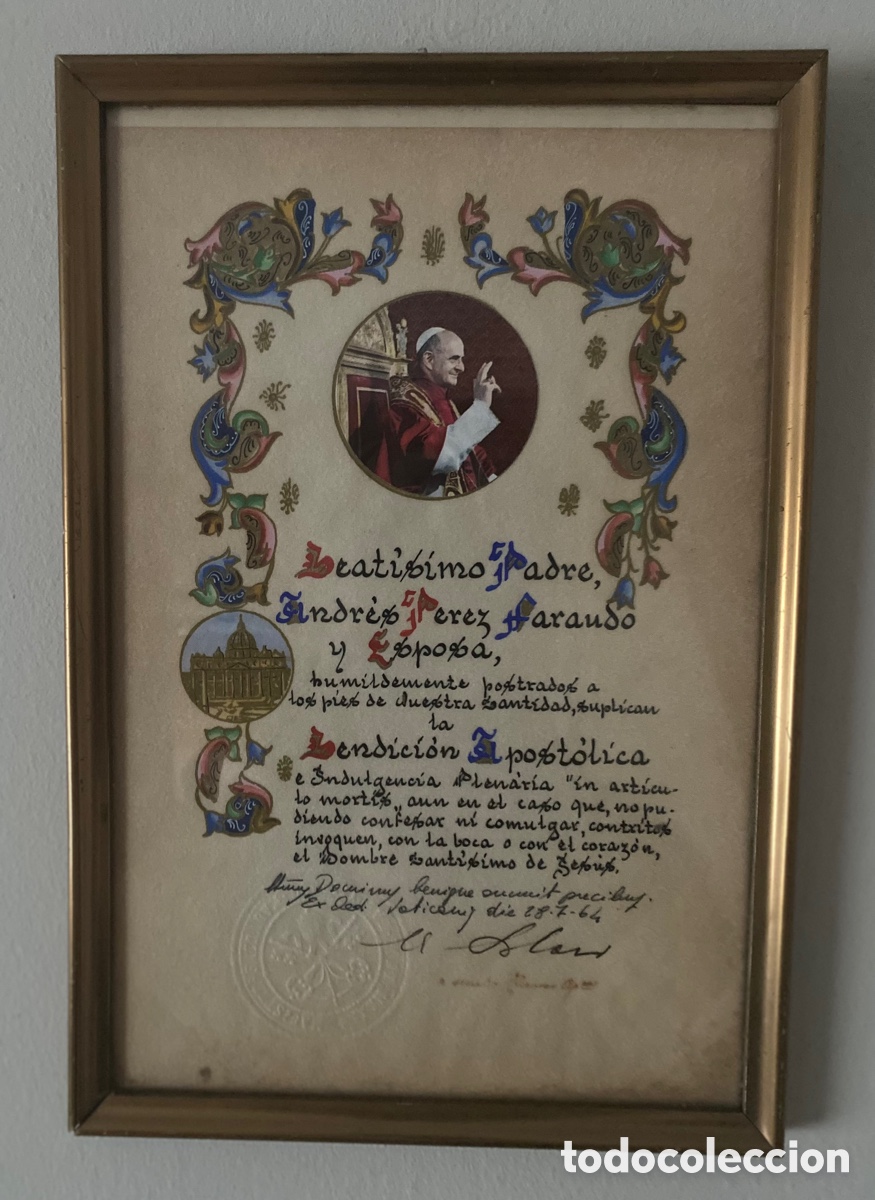 Beatísimo Padre,
Andrés Perez Faraudo
y Esposa,
humildemente postrados a
los pies de Vuestra Santidad, suplican
la
Bendición Apostólica
e Indulgencia Plenária "in articu-
lo mortis„ aun en el caso que, no pu-
diendo confesar ni comulgar, contritos
invoquen, con la boca o con el corazón,
el Nombre Santísimo de Jesús.
benigne annuit precibus.
Ex Aed. Vaticanis die 28-7-64
todocoleccion